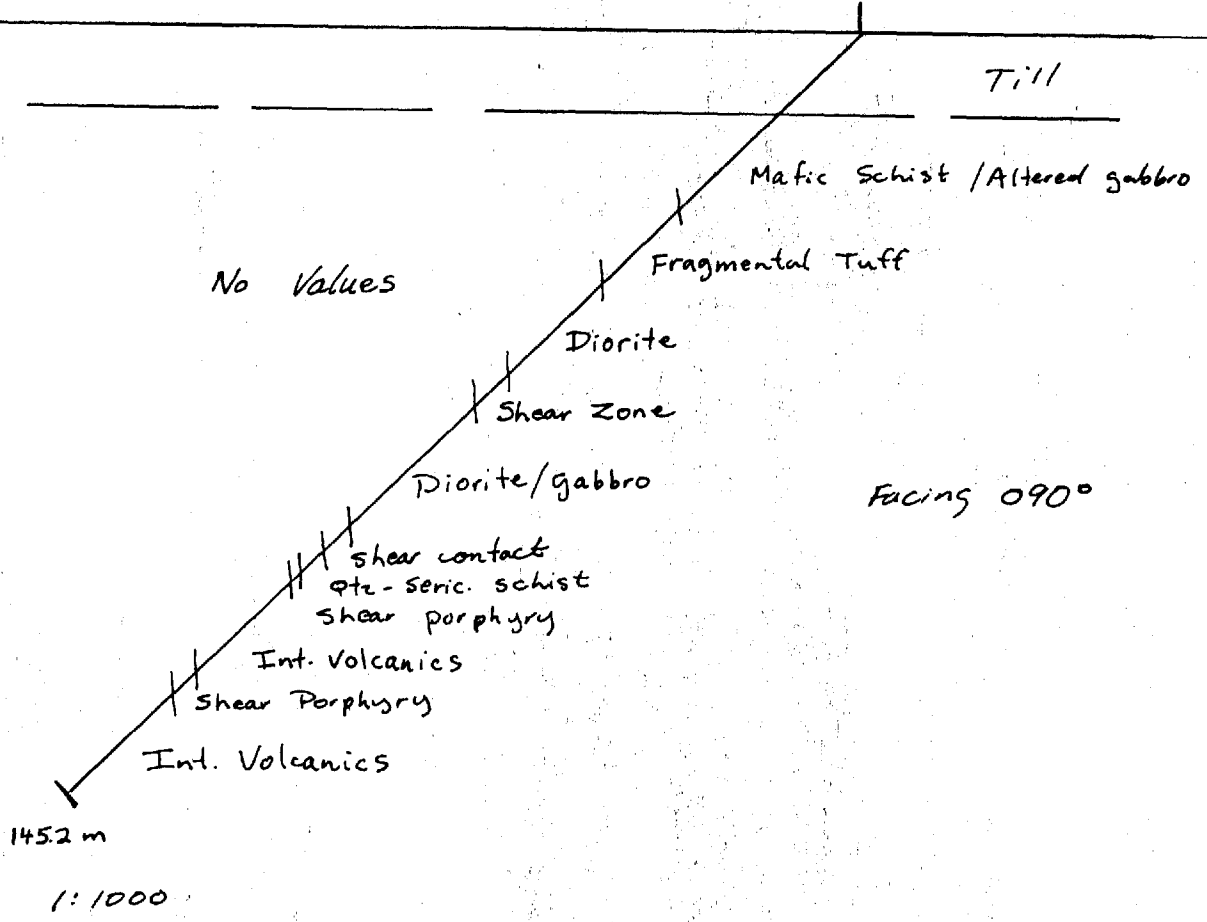 Till
Mafic Schist / Altered gabbro
Fragmental Tuff
No Values
Diorite
Shear Zone
Diorite/gabbro
Facing 090°
shear contact
Qtz-Seric. schist
Shear porphyry
Int. Volcanics
Shear Porphyry
Int. Volcanics
145.2 m
1:1000